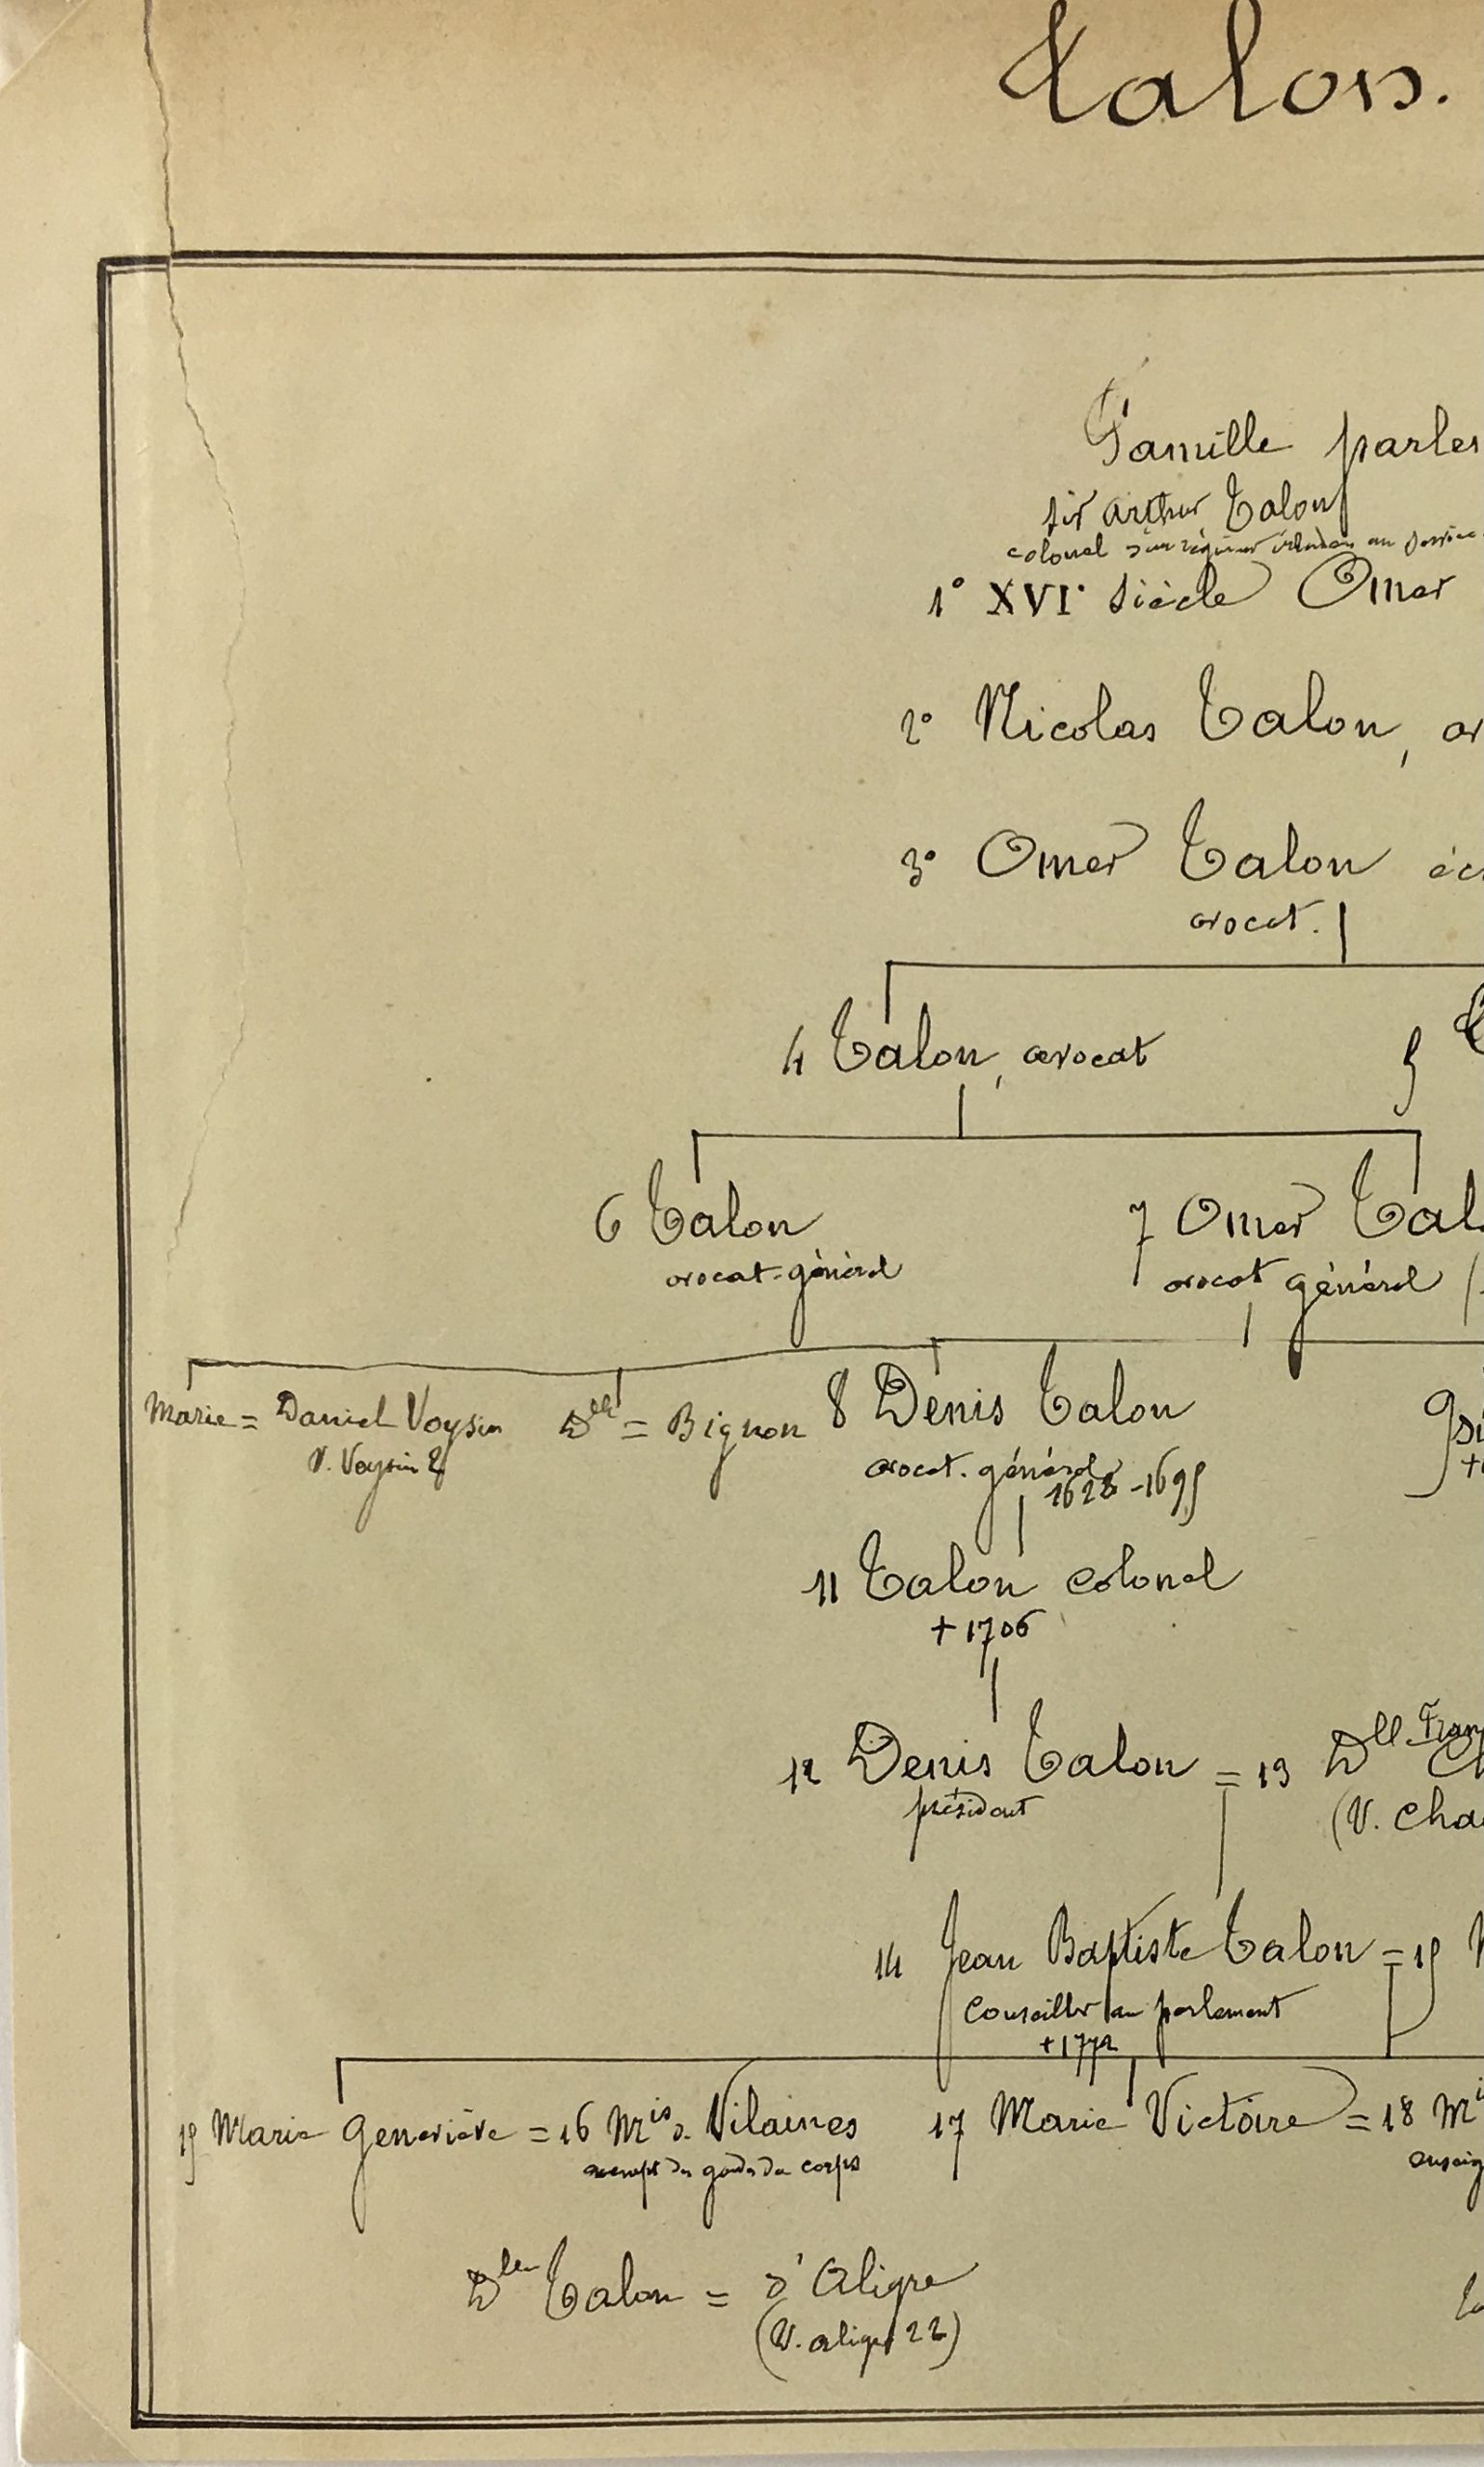 Talon.
Famille parle
sir Arthur Talon
colonel d'un régiment irlandais au service
1° XVIe siècle Omer
2° Nicolas Talon, av
3° Omer Talon éc
avocat.
4 Talon, avocat
5
6 Talon
avocat-général
7 Omer Tal
avocat général
Marie = Daniel Voysin
V. Voysin 2
Dlle = Bignon
8 Denis Talon
avocat-général
1628-1695
9
11 Talon colonel
+ 1706
12 Denis Talon = 13 Dlle Fran
président
(V. Cha
14 Jean Baptiste Talon = 15
Conseiller au parlement
+ 1772
15 Marie Geneviève = 16 Mis de Vilaines
exempt des gardes du corps
17 Marie Victoire = 18 Mi
enseig
Dlle Talon = d'Aligre
(V. Aligre 22)